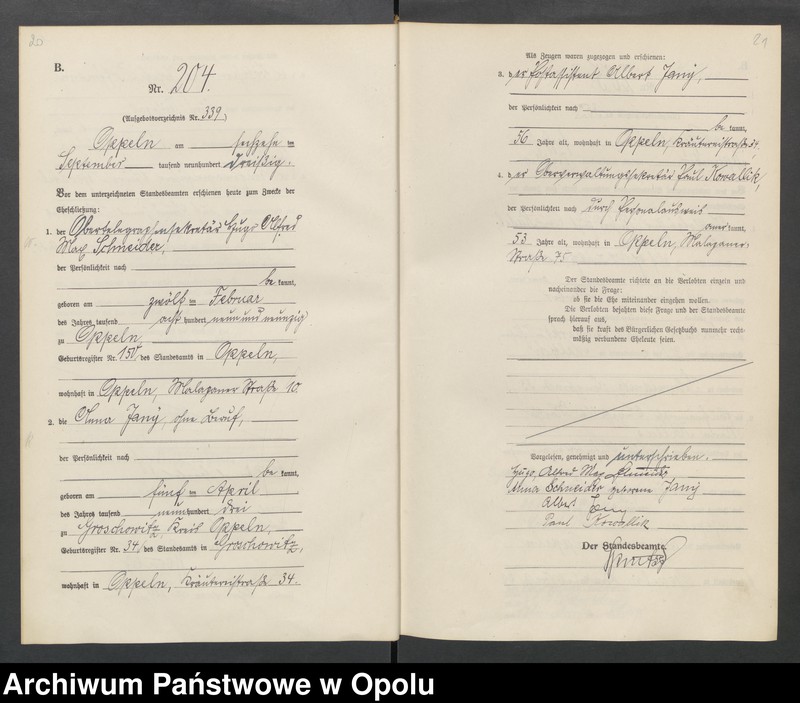 20
B.
Nr. 204.
(Aufgebotsverzeichnis Nr. 339)
Oppeln am sechzehn ten
September tausend neunhundert dreißig.
Vor dem unterzeichneten Standesbeamten erschienen heute zum Zwecke der
Eheschließung:
1. der Obertelegraphensekretär Hugo Alfred
Max Schneider,
der Persönlichkeit nach
be kannt,
geboren am zwölf ten Februar
des Jahres tausend acht hundert neunundneunzig
zu Oppeln,
Geburtsregister Nr. 150 des Standesamts in Oppeln,
wohnhaft in Oppeln, Malapaner Straße 10.
2. die Anna Jany, ohne Beruf,
der Persönlichkeit nach
be kannt,
geboren am fünf ten April
des Jahres tausend neunhundert drei
zu Groschowitz, Kreis Oppeln,
Geburtsregister Nr. 34, des Standesamts in Groschowitz,
wohnhaft in Oppeln, Kräutereistraße 34.
21
Als Zeugen waren zugezogen und erschienen:
3. der Postassistent Albert Jany,
der Persönlichkeit nach
be kannt,
56 Jahre alt, wohnhaft in Oppeln, Kräutereistraße 34,
4. der Oberverwaltungssekretär Paul Kowallik,
der Persönlichkeit nach durch Personalausweis
aner kannt,
53 Jahre alt, wohnhaft in Oppeln, Malapaner
Straße 75
Der Standesbeamte richtete an die Verlobten einzeln und
nacheinander die Frage:
ob sie die Ehe miteinander eingehen wollen.
Die Verlobten bejahten diese Frage und der Standesbeamte
sprach hierauf aus,
daß sie kraft des Bürgerlichen Gesetzbuchs nunmehr recht-
mäßig verbundene Eheleute seien.
Vorgelesen, genehmigt und unterschrieben.
Hugo Alfred Max Schneider
Anna Schneider geborene Jany
Albert Jany
Paul Kowallik
Der Standesbeamte.
Archiwum Państwowe w Opolu